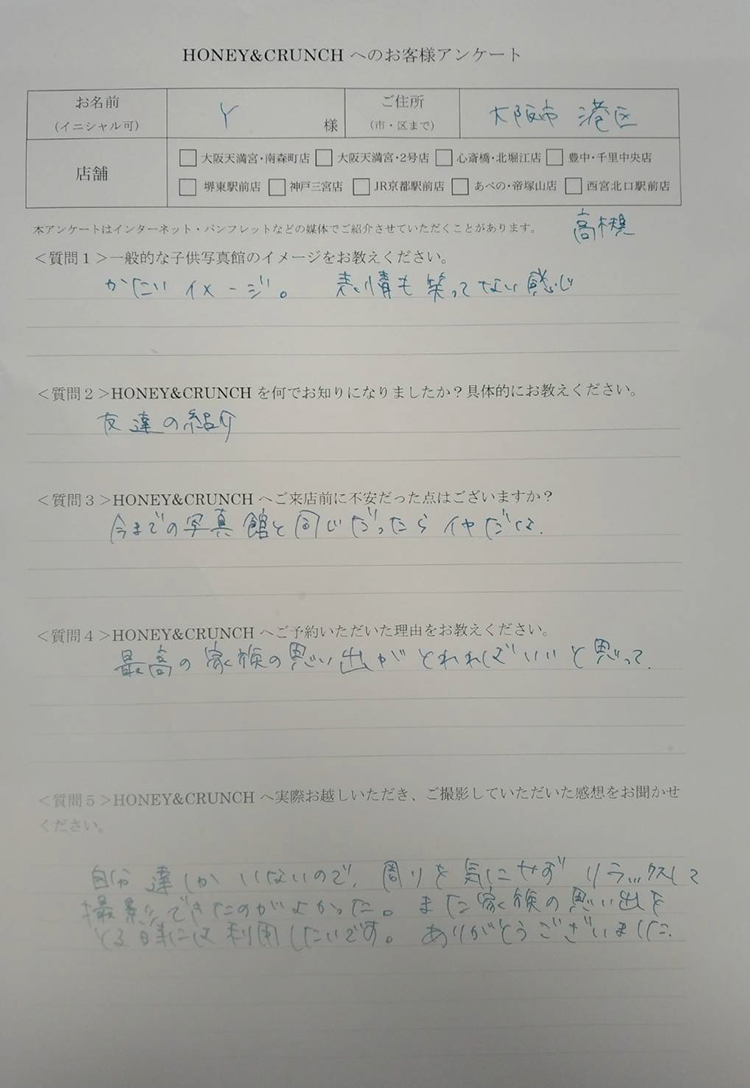 HONEY&CRUNCH へのお客様アンケート
お名前 (イニシャル可) Y 様 ご住所 (市・区まで) 大阪市 港区
店舗 □ 大阪天満宮・南森町店 □ 大阪天満宮・2号店 □ 心斎橋・北堀江店 □ 豊中・千里中央店
□ 堺東駅前店 □ 神戸三宮店 □ JR京都駅前店 □ あべの・帝塚山店 □ 西宮北口駅前店
本アンケートはインターネット・パンフレットなどの媒体でご紹介させていただくことがあります。 高槻
＜質問１＞一般的な子供写真館のイメージをお教えください。
かたいイメージ。 表情も笑ってない感じ
＜質問２＞HONEY&CRUNCH を何でお知りになりましたか？具体的にお教えください。
友達の紹介
＜質問３＞HONEY&CRUNCH へご来店前に不安だった点はございますか？
今までの写真館と同じだったらイヤだな.
＜質問４＞HONEY&CRUNCH へご予約いただいた理由をお教えください。
最高の家族の思い出がとれればいいと思って.
＜質問５＞HONEY&CRUNCH へ実際お越しいただき、ご撮影していただいた感想をお聞かせ
ください。
自分達しかいないので、周りを気にせずリラックスして
撮影できたのがよかった。また家族の思い出を
とる時には利用したいです。ありがとうございました.